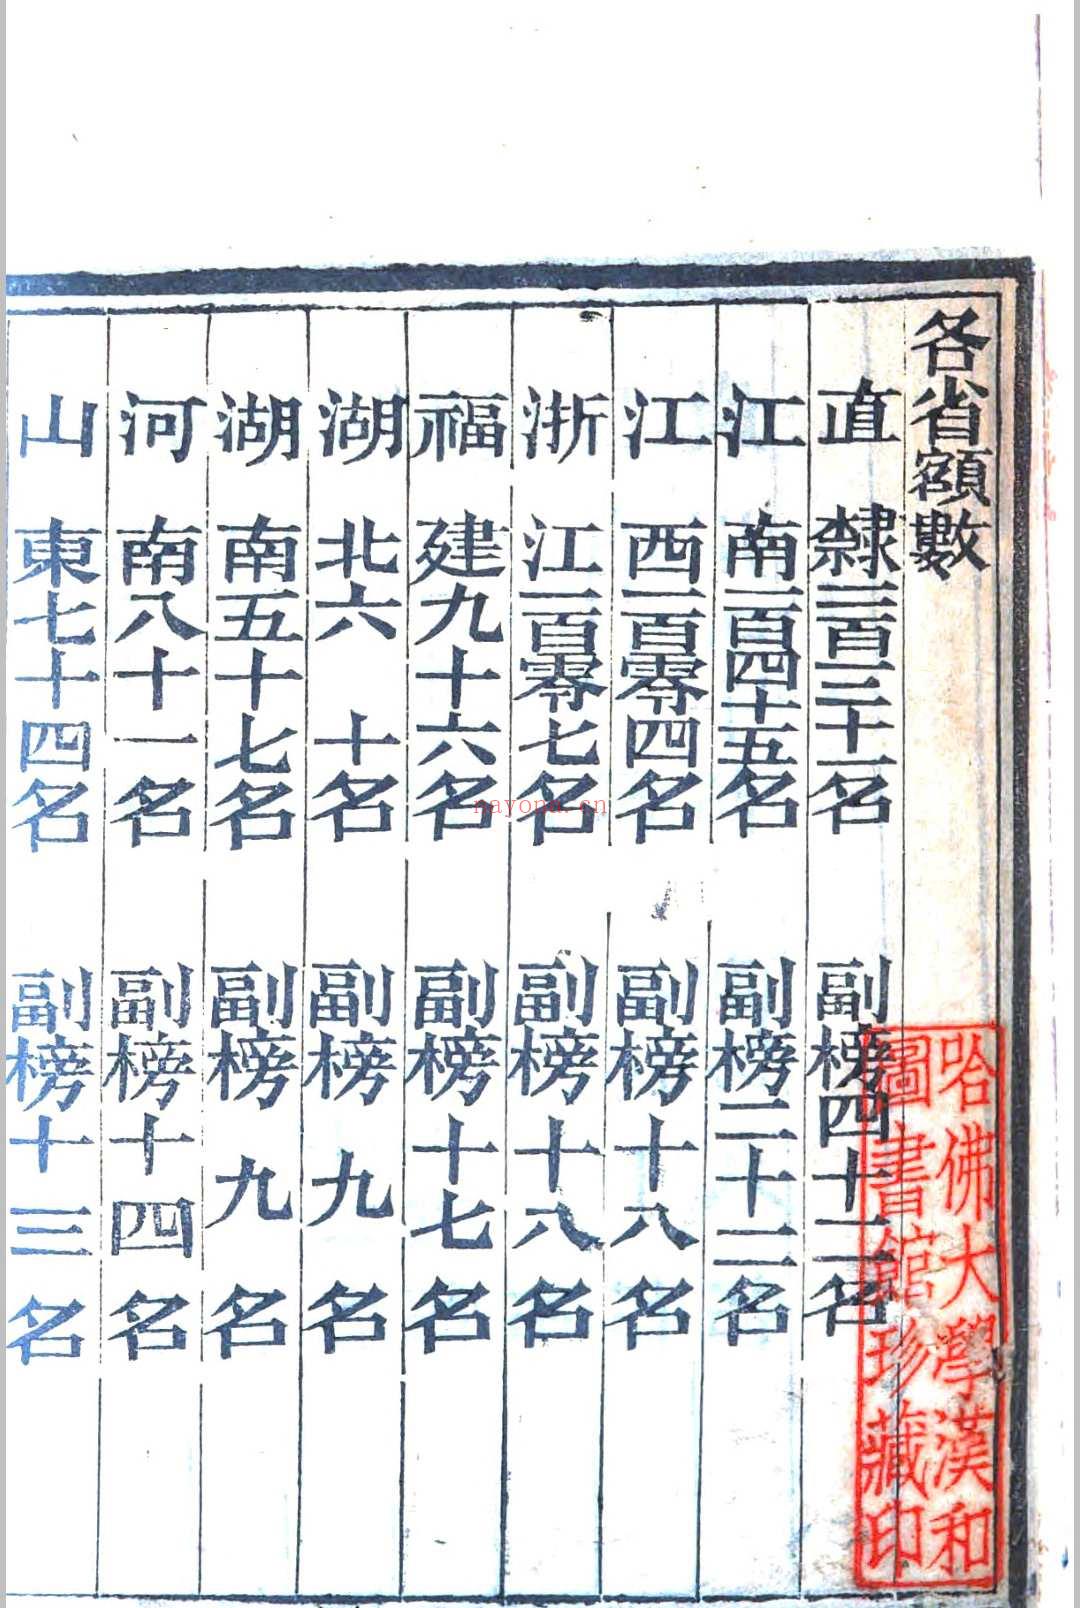 各省額數
直隸二百三十一名 副榜四十二名
江南一百四十五名 副榜二十二名
江西一百零四名 副榜十八名
浙江一百零七名 副榜十八名
福建九十六名 副榜十七名
湖北六十名 副榜九名
湖南五十七名 副榜九名
河南八十一名 副榜十四名
山東七十四名 副榜十三名
哈佛大學漢和
圖書館珍藏印
nayona.cn